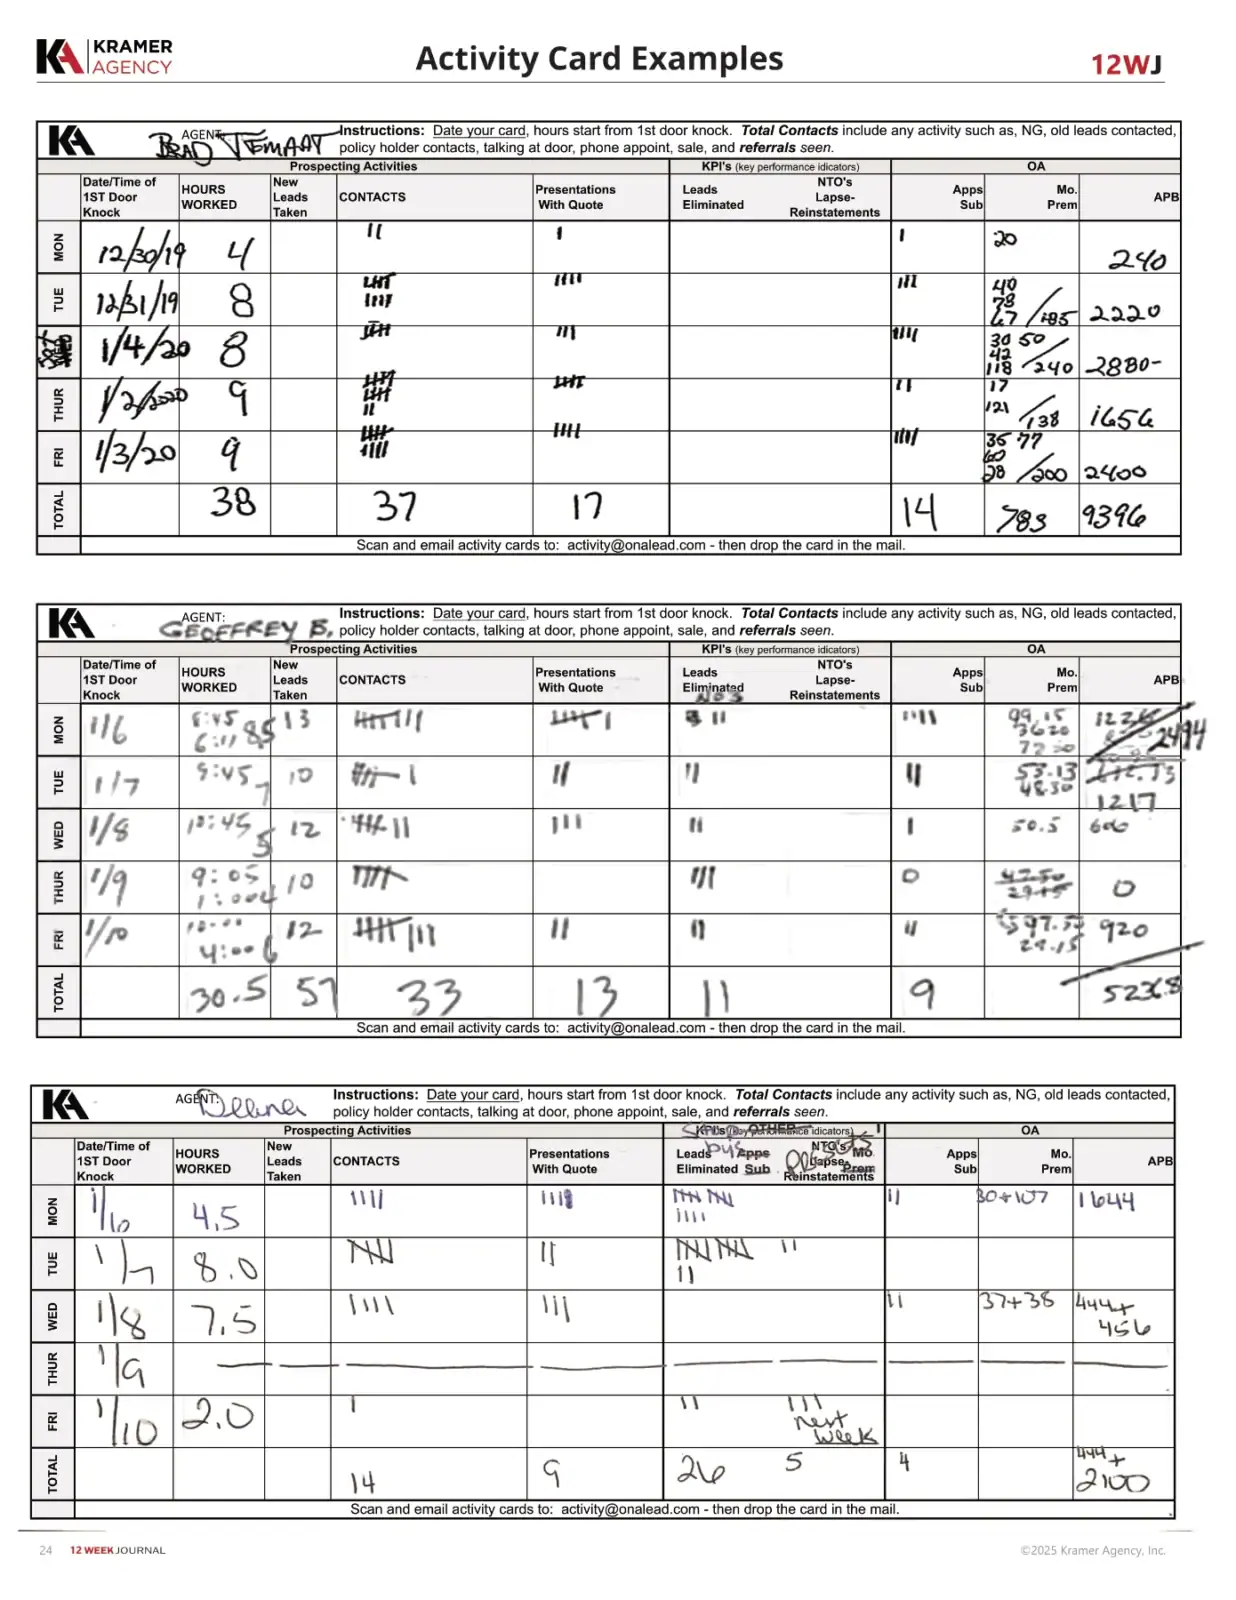 KRAMER
AGENCY
Activity Card Examples
12WJ
KA
AGENT: BRAD TEMAAT
Instructions: Date your card, hours start from 1st door knock. Total Contacts include any activity such as, NG, old leads contacted,
policy holder contacts, talking at door, phone appoint, sale, and referrals seen.
Prospecting Activities KPI's (key performance idicators) OA
Date/Time of 1ST Door Knock HOURS WORKED New Leads Taken CONTACTS Presentations With Quote Leads Eliminated NTO's Lapse-Reinstatements Apps Sub Mo. Prem APB
MON 12/30/19 4 II I I 20 240
TUE 12/31/19 8 IIII III 40 78 67 /185 2220
WED 1/4/20 8 III IIII 30 50 42 118 /240 2880-
THUR 1/2/2020 9 II 17 121 /138 1656
FRI 1/3/20 9 IIII IIII 35 77 60 28 /200 2400
TOTAL 38 37 17 14 783 9396
Scan and email activity cards to: activity@onalead.com - then drop the card in the mail.
KA
AGENT: GEOFFREY B.
Instructions: Date your card, hours start from 1st door knock. Total Contacts include any activity such as, NG, old leads contacted,
policy holder contacts, talking at door, phone appoint, sale, and referrals seen.
Prospecting Activities KPI's (key performance idicators) OA
Date/Time of 1ST Door Knock HOURS WORKED New Leads Taken CONTACTS Presentations With Quote Leads Eliminated NO's NTO's Lapse-Reinstatements Apps Sub Mo. Prem APB
MON 1/6 8.5 13 II 99.15 3620 2494
TUE 1/7 9:45 7 10 II II II 53.13 48.30 1217
WED 1/8 10:45 5 12 III II I 50.5 606
THUR 1/9 9:05 1:00 4 10 III 0 47.50 29.15 0
FRI 1/10 10:00 4:00 6 12 II II II 29.15 920
TOTAL 30.5 57 33 13 11 9 5236.8
Scan and email activity cards to: activity@onalead.com - then drop the card in the mail.
KA
AGENT:
Instructions: Date your card, hours start from 1st door knock. Total Contacts include any activity such as, NG, old leads contacted,
policy holder contacts, talking at door, phone appoint, sale, and referrals seen.
Prospecting Activities KPI's (key performance idicators) OTHER OA
Date/Time of 1ST Door Knock HOURS WORKED New Leads Taken CONTACTS Presentations With Quote Leads Eliminated Apps Sub NTO's Lapse-Reinstatements Mo. Prem Apps Sub Mo. Prem APB
MON 1/10 4.5 IIII II 30+107 1644
TUE 1/7 8.0 II II
WED 1/8 7.5 IIII III II 37+38 444+ 456
THUR 1/9
FRI 1/10 2.0 I II III next week
TOTAL 14 9 26 5 4 444+ 2100
Scan and email activity cards to: activity@onalead.com - then drop the card in the mail.
24 12 WEEK JOURNAL
©2025 Kramer Agency, Inc.